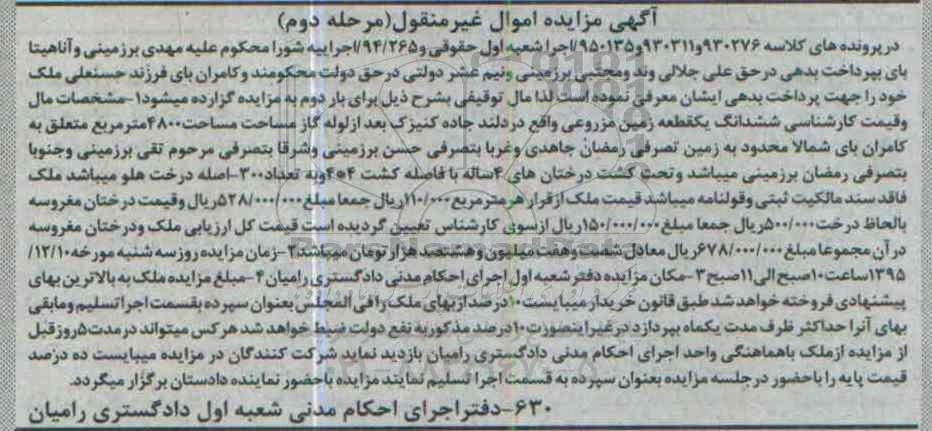 آگهی مزایده اموال غیرمنقول(مرحله دوم)
درپرونده های کلاسه ۹۳۰۲۷۶و۹۳۰۳۱۱و۹۵۰۱۳۵/اجرا شعبه اول حقوقی و۹۴/۲۶۵/اجراییه شورا محکوم علیه مهدی برزمینی و آناهیتا
بای بپرداخت بدهی درحق علی جلالی وند ومجتبی برزمینی ونیم عشر دولتی درحق دولت محکومند وکامران بای فرزند حسنعلی ملک
خود را جهت پرداخت بدهی ایشان معرفی نموده است لذا مال توقیفی بشرح ذیل برای بار دوم به مزایده گزارده میشود۱-مشخصات مال
وقیمت کارشناسی ششدانگ یکقطعه زمین مزروعی واقع دردلند جاده کنیزک بعد ازلوله گاز مساحت مساحت۴۸۰۰مترمربع متعلق به
کامران بای شمالا محدود به زمین تصرفی رمضان جاهدی وغربا بتصرفی حسن برزمینی وشرقا بتصرفی مرحوم تقی برزمینی وجنوبا
بتصرفی رمضان برزمینی میباشد وتحت کشت درختان های ۴ساله با فاصله کشت ۴*۴وبه تعداد۳۰۰-اصله درخت هلو میباشد ملک
فاقد سند مالکیت ثبتی وقولنامه میباشد قیمت ملک ازقرار هرمترمربع۱۱۰/۰۰۰ریال جمعا مبلغ۵۲۸/۰۰۰/۰۰۰ریال وقیمت درختان مغروسه
بالحاظ درخت۵۰۰/۰۰۰ریال جمعا مبلغ۱۵۰/۰۰۰/۰۰۰ریال ازسوی کارشناس تعیین گردیده است قیمت کل ارزیابی ملک ودرختان مغروسه
درآن مجموعا مبلغ۶۷۸/۰۰۰/۰۰۰ریال معادل شصت وهفت میلیون وهشتصد هزار تومان میباشد۲-زمان مزایده روزسه شنبه مورخه۱۲/۱۰/
۱۳۹۵ساعت۱۰صبح الی۱۱صبح۳-مکان مزایده دفترشعبه اول اجرای احکام مدنی دادگستری رامیان۴-مبلغ مزایده ملک به بالاترین بهای
پیشنهادی فروخته خواهد شد طبق قانون خریدار میبایست۱۰درصد ازبهای ملک رافی المجلس بعنوان سپرده بقسمت اجراتسلیم ومابقی
بهای آنرا حداکثر ظرف مدت یکماه بپردازد درغیراینصورت۱۰درصد مذکوربه نفع دولت ضبط خواهد شد هرکس میتواند درمدت۵روزقبل
از مزایده ازملک باهماهنگی واحد اجرای احکام مدنی دادگستری رامیان بازدید نماید شرکت کنندگان در مزایده میبایست ده درصد
قیمت پایه را باحضور درجلسه مزایده بعنوان سپرده به قسمت اجرا تسلیم نمایند مزایده باحضور نماینده دادستان برگزار میگردد.
۶۳۰-دفتراجرای احکام مدنی شعبه اول دادگستری رامیان